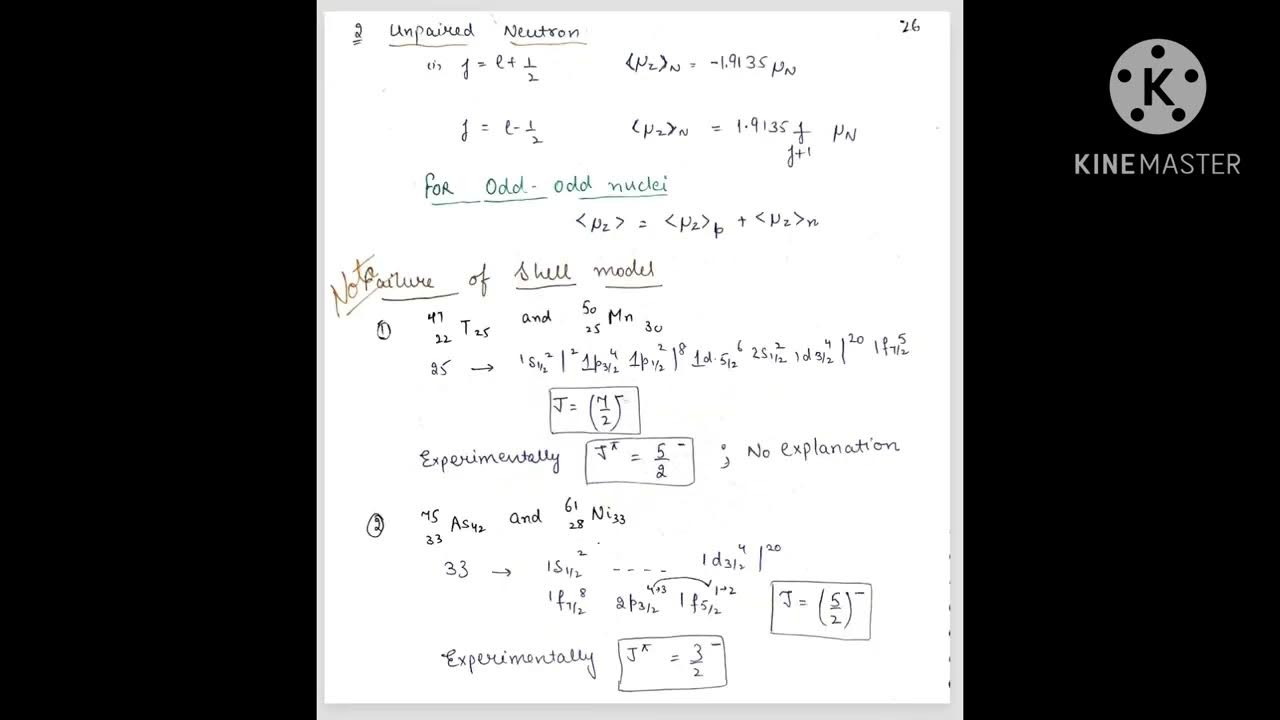 2 Unpaired Neutron 26
(i) j = l + 1/2 <μz>N = -1.9135 μN
j = l - 1/2 <μz>N = 1.9135 j/j+1 μN
FOR Odd-odd nuclei
<μz> = <μz>p + <μz>n
Note Failure of Shell model
① 47 22 T 25 and 50 25 Mn 30
25 → 1s1/2^2 |^2 1p3/2^4 1p1/2^2 |^8 1d5/2^6 2s1/2^2 1d3/2^4 |^20 1f7/2^5
J = (7/2)^-
Experimentally J^π = 5/2^- ; No explanation
② 75 33 As42 and 61 28 Ni33
33 → 1s1/2^2 ---- 1d3/2^4 |^20
1f7/2^8 2p3/2^4→3 1f5/2^1→2 J = (5/2)^-
Experimentally J^π = 3/2^-
K
KINEMASTER